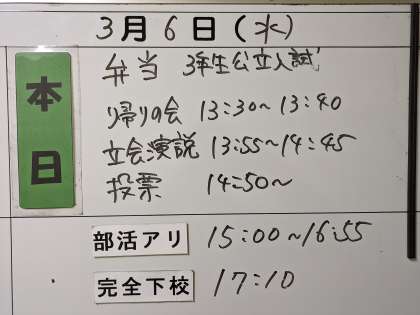 3月6日(水)
本日
弁当 3年生公立入試
帰りの会 13:30~13:40
立会演説 13:55~14:45
投票 14:50~
部活アリ 15:00~16:55
完全下校 17:10